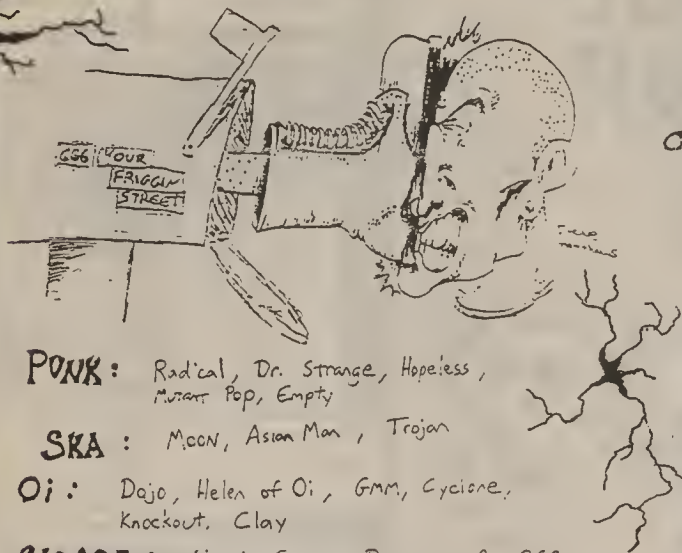 666 YOUR
FRIGGIN
STREET
PUNK: Radical, Dr. Strange, Hopeless,
Mutant Pop, Empty
SKA: Moon, Asian Man, Trojan
Oi: Dojo, Helen of Oi, GMM, Cyclone,
Knockout, Clay